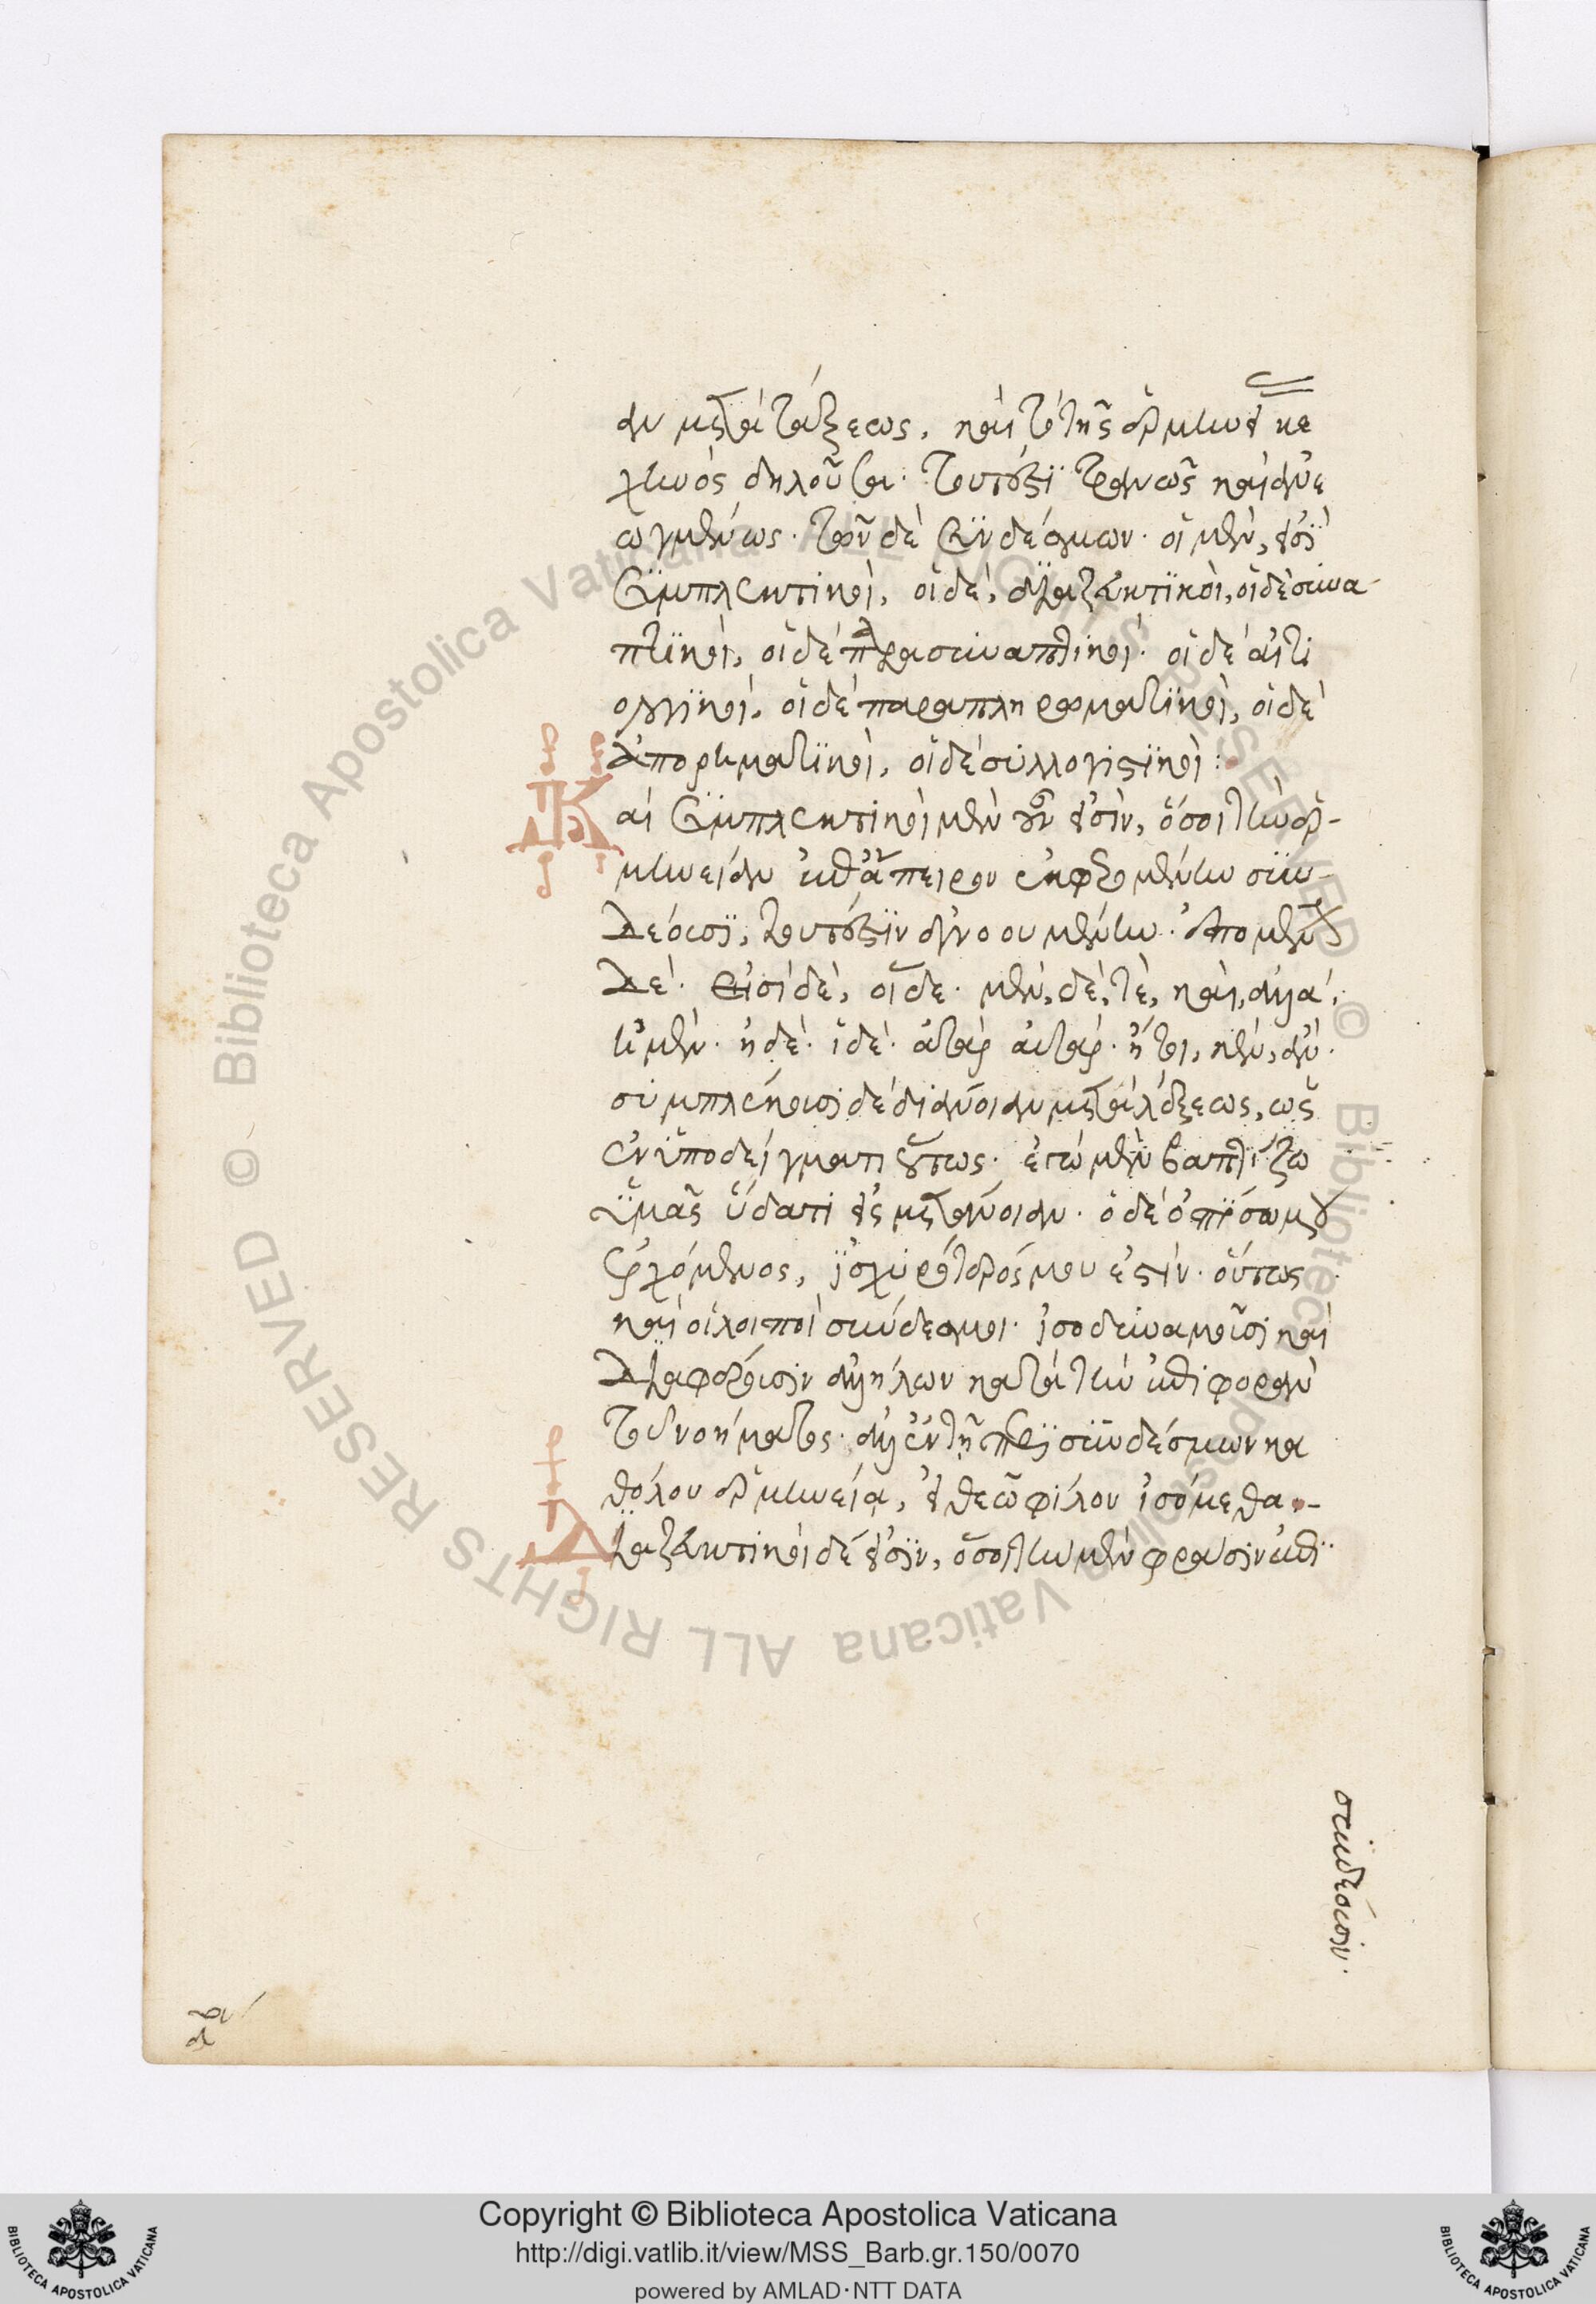 αν μετὰ τάξεως, καὶ τὸ τῆς ἑρμηνείας κε
χηνὸς δηλοῦται· τουτέστι τρανῶς καὶ ἀνε
ῳγμένως· τῶν δὲ συνδέσμων· οἱ μέν, εἰσὶ
συμπλεκτικοὶ, οἱ δέ, διαζευκτικοὶ, οἱ δὲ συνα-
πτικοὶ, οἱ δὲ παρασυναπτικοί· οἱ δὲ αἰτι
ολογικοὶ, οἱ δὲ παραπληρωματικοὶ, οἱ δὲ
ἀπορηματικοὶ, οἱ δὲ συλλογιστικοὶ:
Καὶ συμπλεκτικοὶ μὲν οὖν εἰσὶν, ὅσοι τὴν ἑρ-
μηνείαν ἐπ' ἄπειρον ἐκφερομένην συν-
δέουσι, τουτέστιν
δέ· εἰσὶ δὲ, οἵδε· μέν, δέ, τέ, καὶ, ἀλλά,
ἠμέν· ἠδέ· ἰδέ· ἀτάρ αὐτάρ· ἤτοι, κέν, ἄν·
συμπλέκουσι δὲ διάνοιαν μετὰ λέξεως, ὡς
ἐν ὑποδείγματι οὕτως· ἐγὼ μὲν βαπτίζω
ὑμᾶς ὕδατι εἰς μετάνοιαν· ὁ δὲ ὀπίσω μου
ἐρχόμενος, ἰσχυρότερός μου ἐστίν· οὕτως
καὶ οἱ λοιποὶ σύνδεσμοι· ἰσοδυναμοῦσι καὶ
διαφέρουσιν ἀλλήλων κατὰ τὴν ἐπιφορὰν
τοῦ νοήματος· ἀλλ' ἐν τῇ περὶ συνδέσμων κα
θόλου ἑρμηνείᾳ, εἰ θεῷ φίλον εἰσόμεθα-
Διαζευκτικοὶ δέ εἰσιν, ὅσοι τὴν μὲν φράσιν ἐπι
συνδέουσιν·